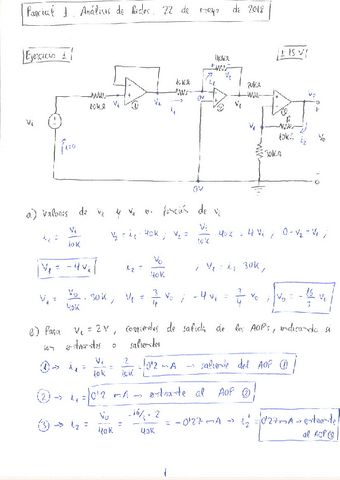 Parcial 1 Análisis de Redes. 22 de mayo de 2018
Ejercicio 1
± 15 V
40kΩ
10kΩ
10kΩ
30kΩ
10kΩ
0V
0V
a) Valores de v₁ y v₀ en función de vᵢ
i₁ = vᵢ/10K V₂ = i₁ · 40K ; V₂ = vᵢ/10K · 40K = 4Vᵢ , 0 - V₂ = V₁ ,
V₁ = -4Vᵢ i₂ = V₀/40K , V₁ = i₂ · 30K ,
V₁ = V₀/40K · 30K ; V₁ = 3/4 V₀ ; -4Vᵢ = 3/4 V₀ , V₀ = -16/3 Vᵢ
Para Vᵢ = 2V, corrientes de salida de los AOPs, indicando si
son entrantes o salientes
① → i₁ = Vᵢ/10K = 2/10K = 0'2 mA → saliente del AOP ①
② → i₁ = 0'2 mA → entrante al AOP ②
③ → i₂ = V₀/40K = -16/3 · 2/40K = -0'27 mA → i₂' = 0'27 mA → entrante
al AOP ③
1